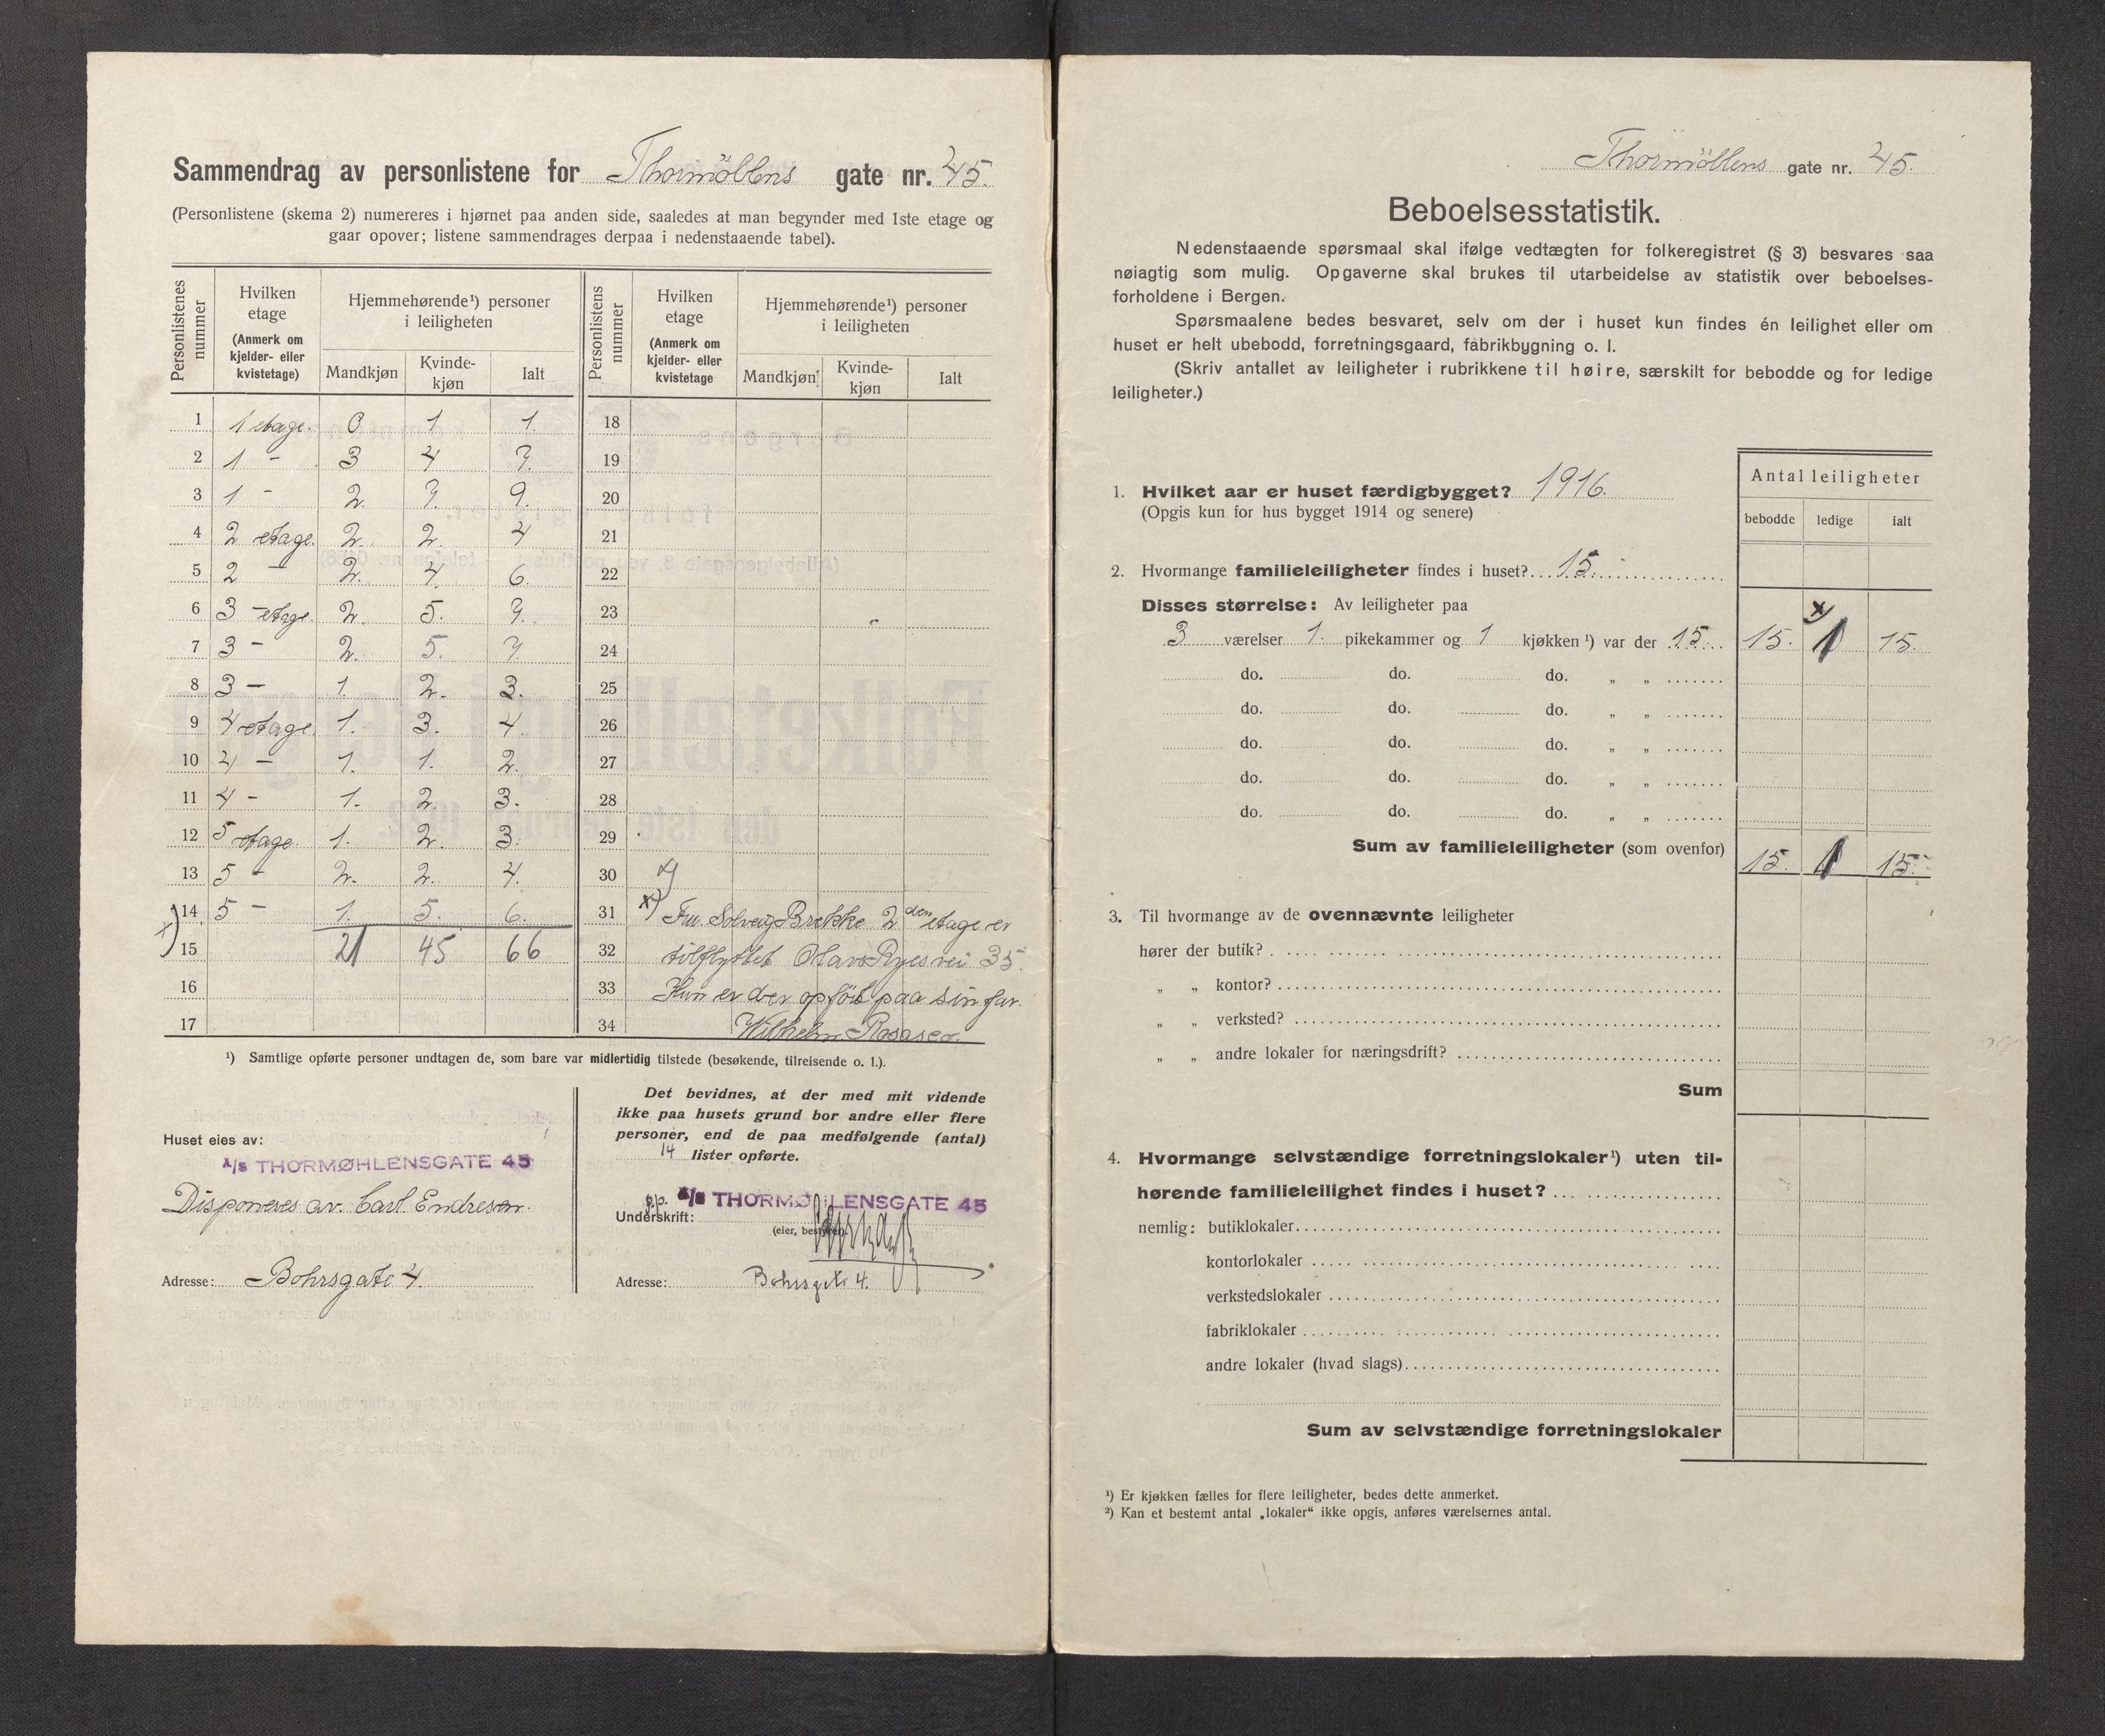 Sammendrag av personlistene for Thormöhlens gate nr. 45.
(Personlistene (skema 2) numereres i hjørnet paa anden side, saaledes at man begynder med 1ste etage og
gaar opover; listene sammendrages derpaa i nedenstaaende tabel).
Personlistenes nummer | Hvilken etage (Anmerk om kjelder- eller kvistetage) | Hjemmehørende¹) personer i leiligheten | Personlistens nummer | Hvilken etage (Anmerk om kjelder- eller kvistetage | Hjemmehørende¹) personer i leiligheten
Mandkjøn | Kvinde-kjøn | Ialt | Mandkjøn | Kvinde-kjøn | Ialt
1 1 etage. 0 1 1. 18
2 1 - 3 4 7. 19
3 1 - 2. 7. 9. 20
4 2 etage. 2. 2. 4 21
5 2 - 2. 4. 6. 22
6 3 - etage. 2. 5. 7. 23
7 3 - 2. 5. 7 24
8 3 - 1. 2. 3. 25
9 4 etage. 1. 3. 4. 26
10 4 - 1. 1. 2. 27
11 4 - 1. 2. 3. 28
12 5 etage. 1. 2. 3. 29
13 5 - 2. 2. 4. 30
x) 14 5 - 1. 5. 6. 31 x) Fru Solveig Brekke 2den etage er
15 21 45 66 32 tilflyttet Olav Ryes vei 35.
16 33 Hun er der opført paa sin far.
17 34 Wilhelm
¹) Samtlige opførte personer undtagen de, som bare var midlertidig tilstede (besøkende, tilreisende o. l.).
Huset eies av:
A/S THORMØHLENSGATE 45
Disponeres av. Carl Endresen.
Adresse: Bohrsgate 4.
Det bevidnes, at der med mit vidende
ikke paa husets grund bor andre eller flere
personer, end de paa medfølgende (antal)
14 lister opførte.
p.p. A/S THORMØHLENSGATE 45
Underskrift:
(eier, bestyrer)
Adresse: Bohrsgate 4.
Thormöhlens gate nr. 45.
Beboelsesstatistik.
Nedenstaaende spørsmaal skal ifølge vedtægten for folkeregistret (§ 3) besvares saa
nøiagtig som mulig. Opgaverne skal brukes til utarbeidelse av statistik over beboelses-
forholdene i Bergen.
Spørsmaalene bedes besvaret, selv om der i huset kun findes én leilighet eller om
huset er helt ubebodd, forretningsgaard, fabrikbygning o. l.
(Skriv antallet av leiligheter i rubrikkene til høire, særskilt for bebodde og for ledige
leiligheter.)
Antal leiligheter
bebodde ledige ialt
1. Hvilket aar er huset færdigbygget? 1916.
(Opgis kun for hus bygget 1914 og senere)
2. Hvormange familieleiligheter findes i huset? 15.
Disses størrelse: Av leiligheter paa x)
3 værelser 1. pikekammer og 1 kjøkken ¹) var der 15. 15. 1 15.
do. do. do. „ „
do. do. do. „ „
do. do. do. „ „
do. do. do. „ „
do. do. do. „ „
Sum av familieleiligheter (som ovenfor) 15. 1 15.
3. Til hvormange av de ovennævnte leiligheter
hører der butik?
„ „ kontor?
„ „ verksted?
„ „ andre lokaler for næringsdrift?
Sum
4. Hvormange selvstændige forretningslokaler¹) uten til-
hørende familieleilighet findes i huset?
nemlig: butiklokaler
kontorlokaler
verkstedslokaler
fabriklokaler
andre lokaler (hvad slags)
Sum av selvstændige forretningslokaler
¹) Er kjøkken fælles for flere leiligheter, bedes dette anmerket.
²) Kan et bestemt antal „lokaler“ ikke opgis, anføres værelsernes antal.